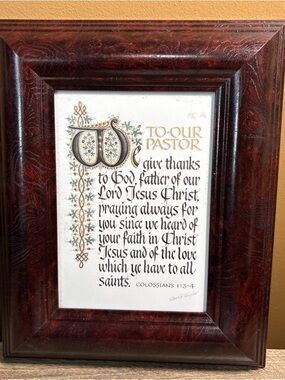 TO·OUR
PASTOR
We give thanks
to God, father of our
Lord Jesus Christ,
praying always for
you since we heard of
your faith in Christ
Jesus and of the love
which ye have to all
saints. COLOSSIANS 1:3-4